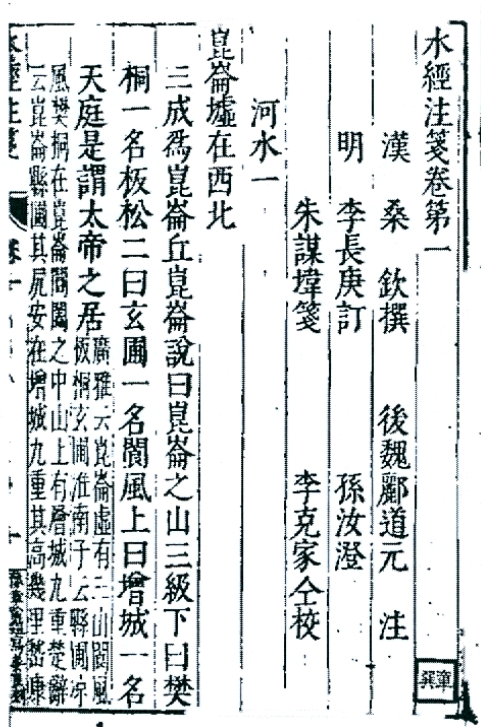 水經注箋卷第一
漢 桑 欽撰 後魏酈道元 注
明 李長庚訂 孫汝澄
朱謀㙔箋 李克家仝校
河水一
崑崙墟在西北
三成爲崑崙丘崑崙說曰崑崙之山三級下曰樊
桐一名板松二曰玄圃一名閬風上曰增城一名
天庭是謂太帝之居
廣雅云崑崙虛有三山閬風
板桐玄圃淮南子云縣圃涼
風樊桐在崑崙閶闔之中山上有層城九重楚辭
云崑崙縣圃其凥安在增城九重其高幾里嵇康
水經注箋